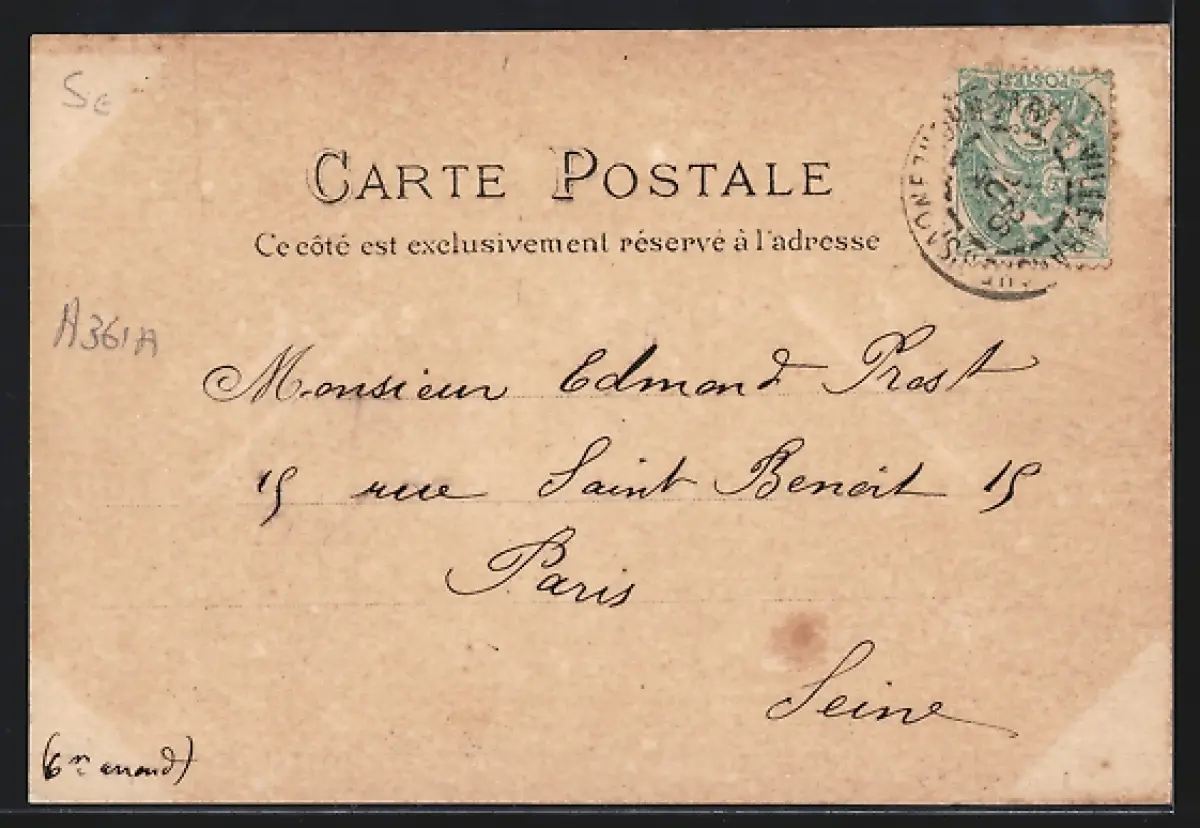 CARTE POSTALE
Ce côté est exclusivement réservé à l'adresse
A361A
Monsieur Edmond Prost
15 rue Saint Benoit 15
Paris
Seine
(6me arrond)
POSTES